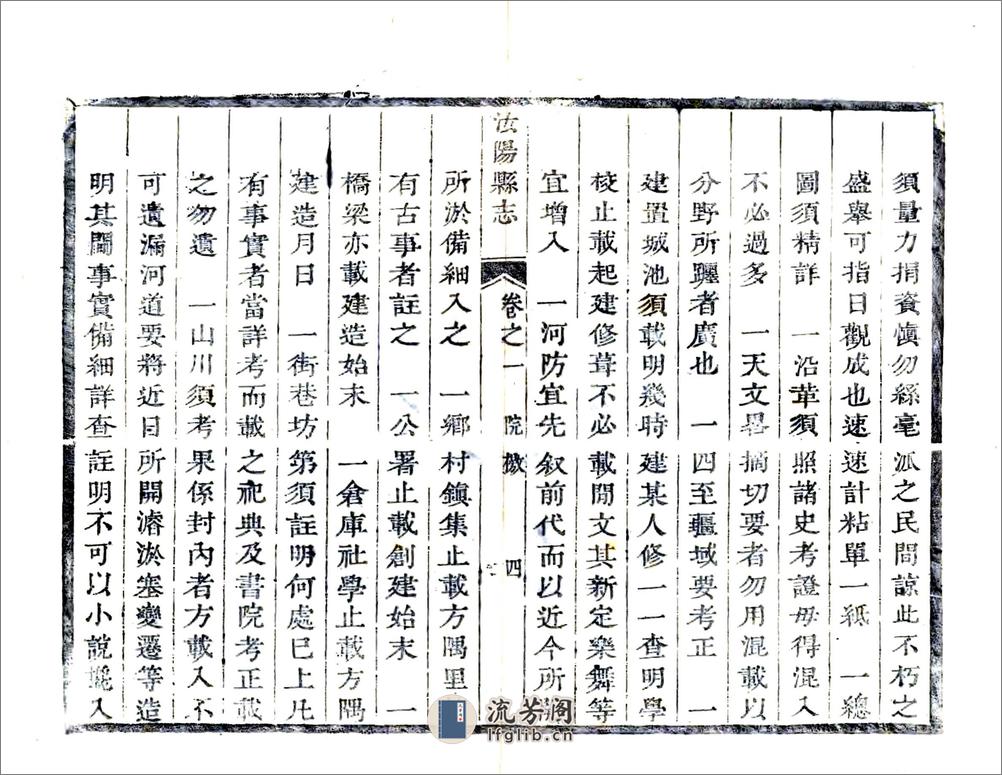 須量力捐資慎勿絲毫泒之民間諒此不朽之
盛舉可指日觀成也速速計粘單一紙　一總
圖須精詳　一沿革須照諸史考證毋得混入
不必過多　一天文畧摘切要者勿用混載以
分野所躔者廣也　一四至疆域要考正　一
建置城池須載明幾時建某人修一一查明學
校止載起建修葺不必載閒文其新定樂舞等
宜增入　一河防宜先叙前代而以近今所
汝陽縣志　卷之一　院檄　四
所淤備細入之　一鄉村鎮集止載方隅里
有古事者註之　一公署止載創建始末　一
橋梁亦載建造始末　一倉庫社學止載方隅
建造月日　一街巷坊第須註明何處巳上凡
有事實者當詳考而載之祀典及書院考正載
之勿遺　一山川須考果係封內者方載入不
可遺漏河道要將近日所開濬淤塞變遷等造
明其閘事實備細詳查註明不可以小說攙入
流芳閣
lfglib.cn